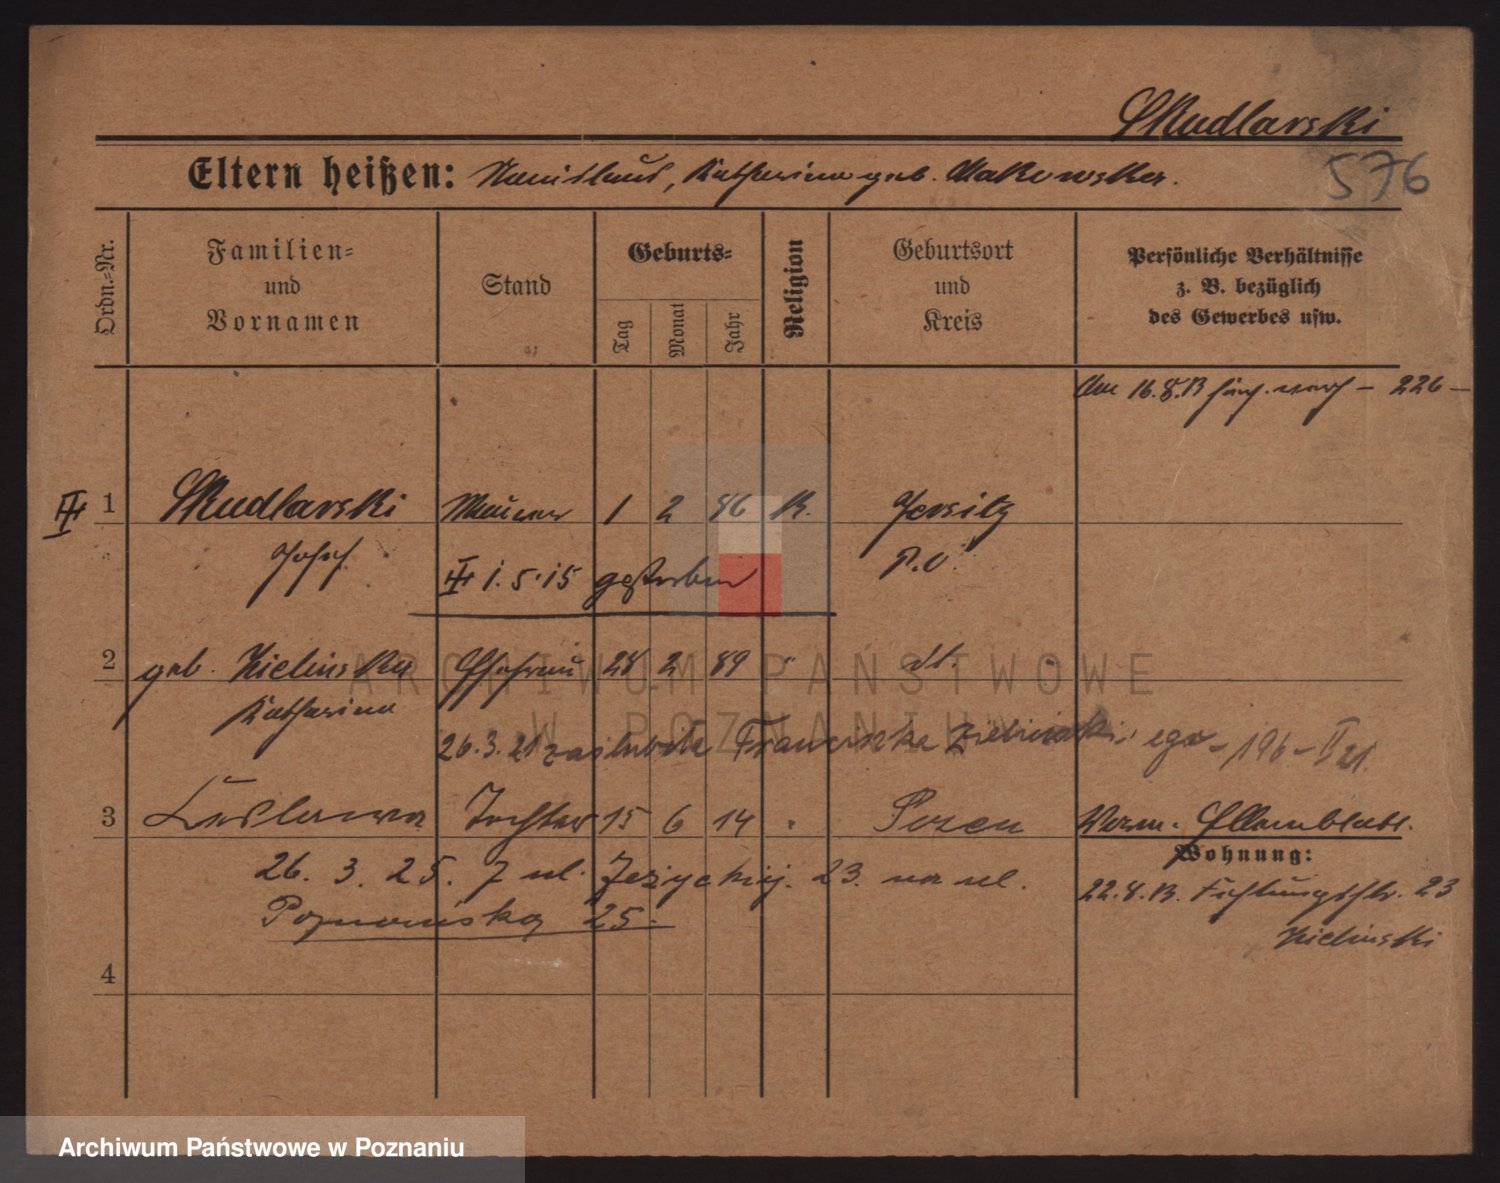 Skudlarski
Eltern heißen: Stanislaus, Katharina geb. Makowska.
576
Ordn.=Nr.
Familien=
und
Vornamen
Stand
Geburts=
Tag
Monat
Jahr
Religion
Geburtsort
und
Kreis
Persönliche Verhältnisse
z. B. bezüglich
des Gewerbes usw.
Am 16.8.13 - 226 -
1 Skudlarski Maurer 1 2 86 K. Jersitz
Josef P.O.
1.5.15 gestorben
2 geb. Zielinska Ehefrau 28 2 89 " dt.
Katharina
26.3.21 zaślubiła Franciszka Zielinski, ega - 196 - II 21.
3 Tochter 15 6 14 " Posen
Wohnung:
26. 3. 25. z ul. Jeżyckiej. 23. na ul.
22.8.13. 23
Poznańską 25.
Zielinski
4
ARCHIWUM PAŃSTWOWE
W POZNANIU
Archiwum Państwowe w Poznaniu